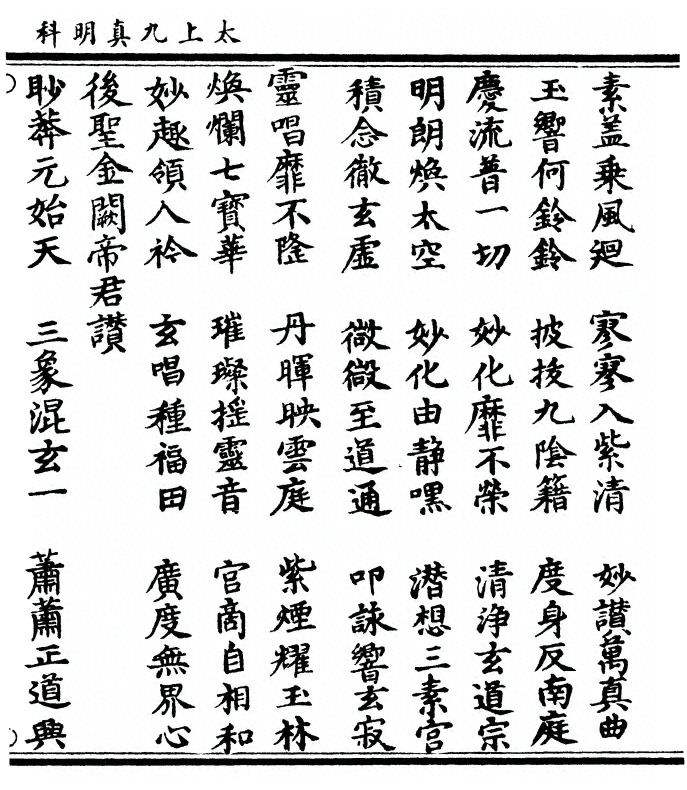 太上九真明科
素蓋乘風迴 寥寥入紫清 妙讃萬真曲
玉響何鈴鈴 披技九陰籍 度身反南庭
慶流普一切 妙化靡不榮 清浄玄道宗
明朗煥太空 妙化由静嘿 潜想三素宫
積念徹玄虛 微微至道通 叩詠響玄寂
靈唱靡不隆 丹暉映雲庭 紫煙耀玉林
煥爛七寶華 璀璨揺靈音 宫商自相和
妙趣領人衿 玄唱種福田 廣度無界心
後聖金闕帝君讃
眇莽元始天 三象混玄一 蕭蕭正道興